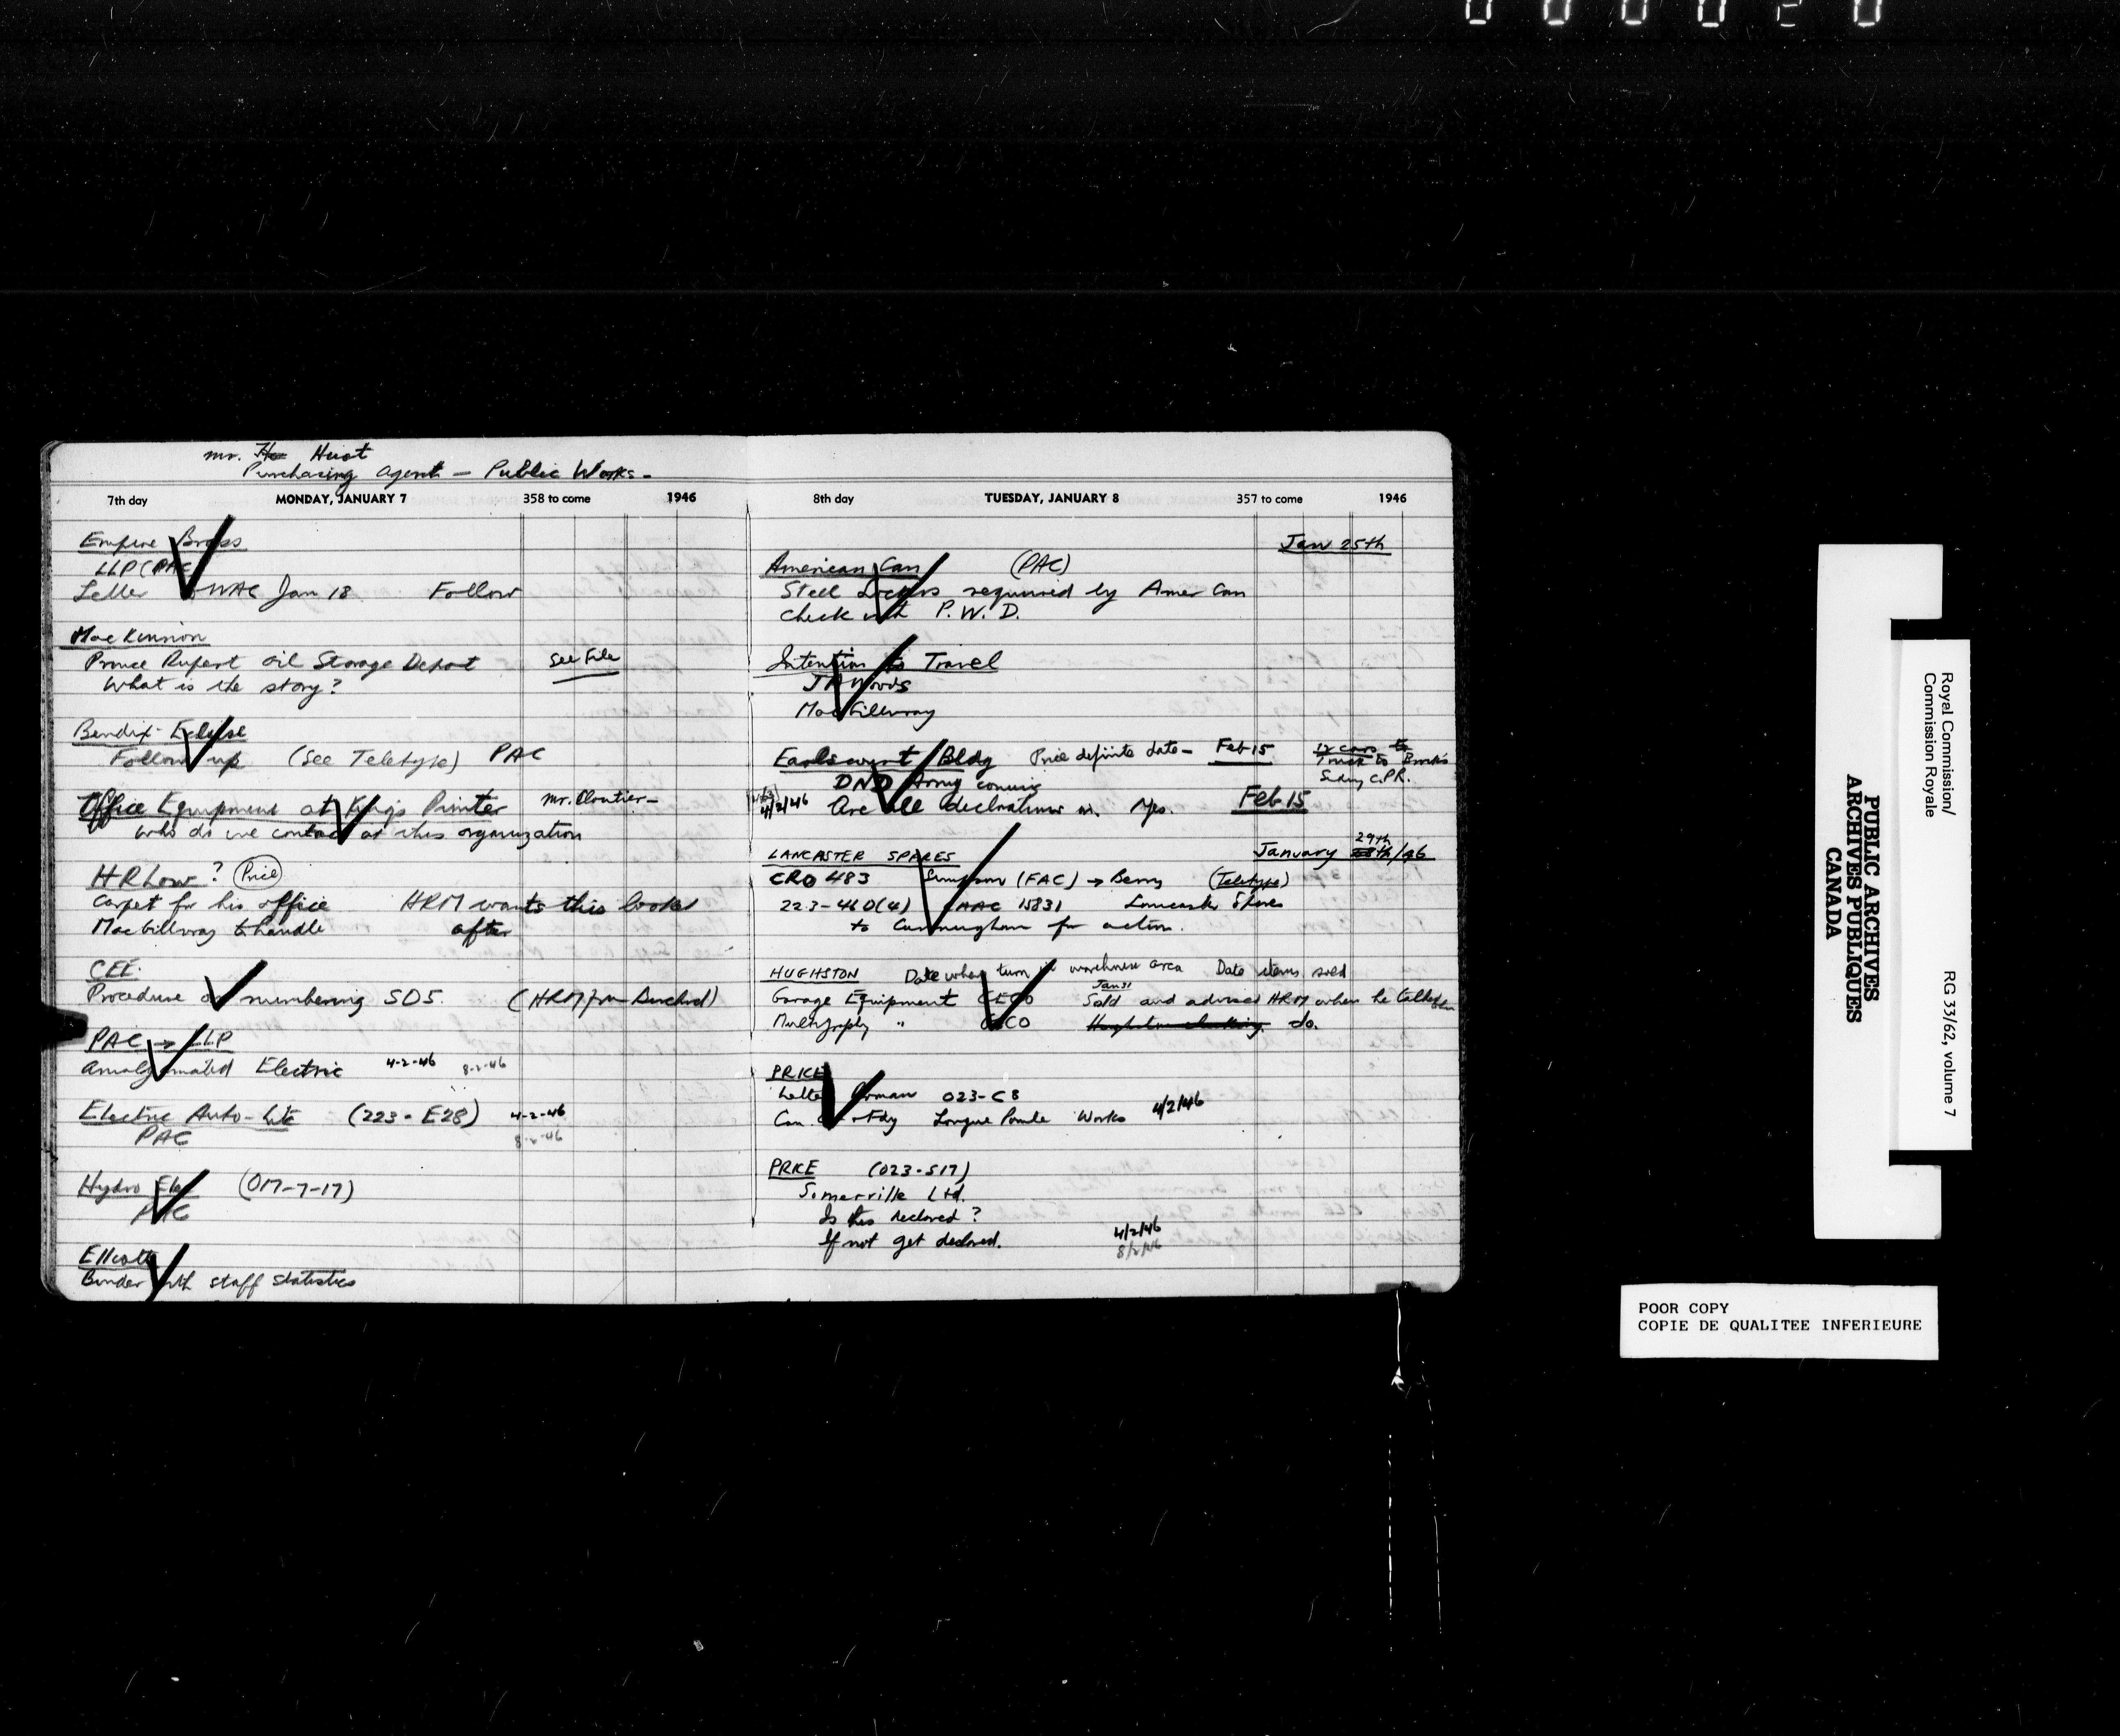 Mr. Huot
Purchasing Agent - Public Works -
7th day MONDAY, JANUARY 7 358 to come 1946
Empire Brass
LLP (PAC)
Letter WAC Jan 18 Follow
MacKinnon
Prince Rupert Oil Storage Depot See File
What is the story?
Bendix-Eclipse
Follow up (See Teletype) PAC
Office Equipment at Kings Printer Mr. Cloutier -
Who do we contact at this organization
HR Low? Price
Carpet for his office HRM wants this looked
MacGillivray to handle after
CEE
Procedure on numbering SDS. (HRM from )
PAC → LLP
Amalgamated Electric 4-2-46 8-2-46
Electric Auto-Lite (223-E28) 4-2-46
PAC 8-2-46
Hydro Elec (017-7-17)
PAC
Ellicott
Binder with staff statistics
8th day TUESDAY, JANUARY 8 357 to come 1946
Jan 25th
American Can (PAC)
Steel Lockers required by Amer Can
Check with P.W.D.
Intention to Travel
Woods
MacGillivray
Earlscourt Bldg Price definite date - Feb 15 12 cars to
Truck to
DND Army coming C.P.R.
4/2/46 Are all declarations in. Yes. Feb 15
29th
LANCASTER SPARES January /46
CRO 483 Simpson (FAC) → Berry (Teletype)
223-46D(4) 15831 Lancaster Spares
to Cunningham for action.
HUGHSTON Date when turn in warehouse area Date items sold
Jan 31
Garage Equipment CECO Sold and advised HRM when he talked
Multigraph " CECO do.
PRICE
Letter 023-C8
Can. Car + Fdy Longue Pointe Works 4/2/46
PRICE (023-S17)
Somerville Ltd.
Is this declared?
If not get declared. 4/2/46
8/2/46
Royal Commission/
Commission Royale
RG 33/62, volume 7
PUBLIC ARCHIVES
ARCHIVES PUBLIQUES
CANADA
POOR COPY
COPIE DE QUALITEE INFERIEURE